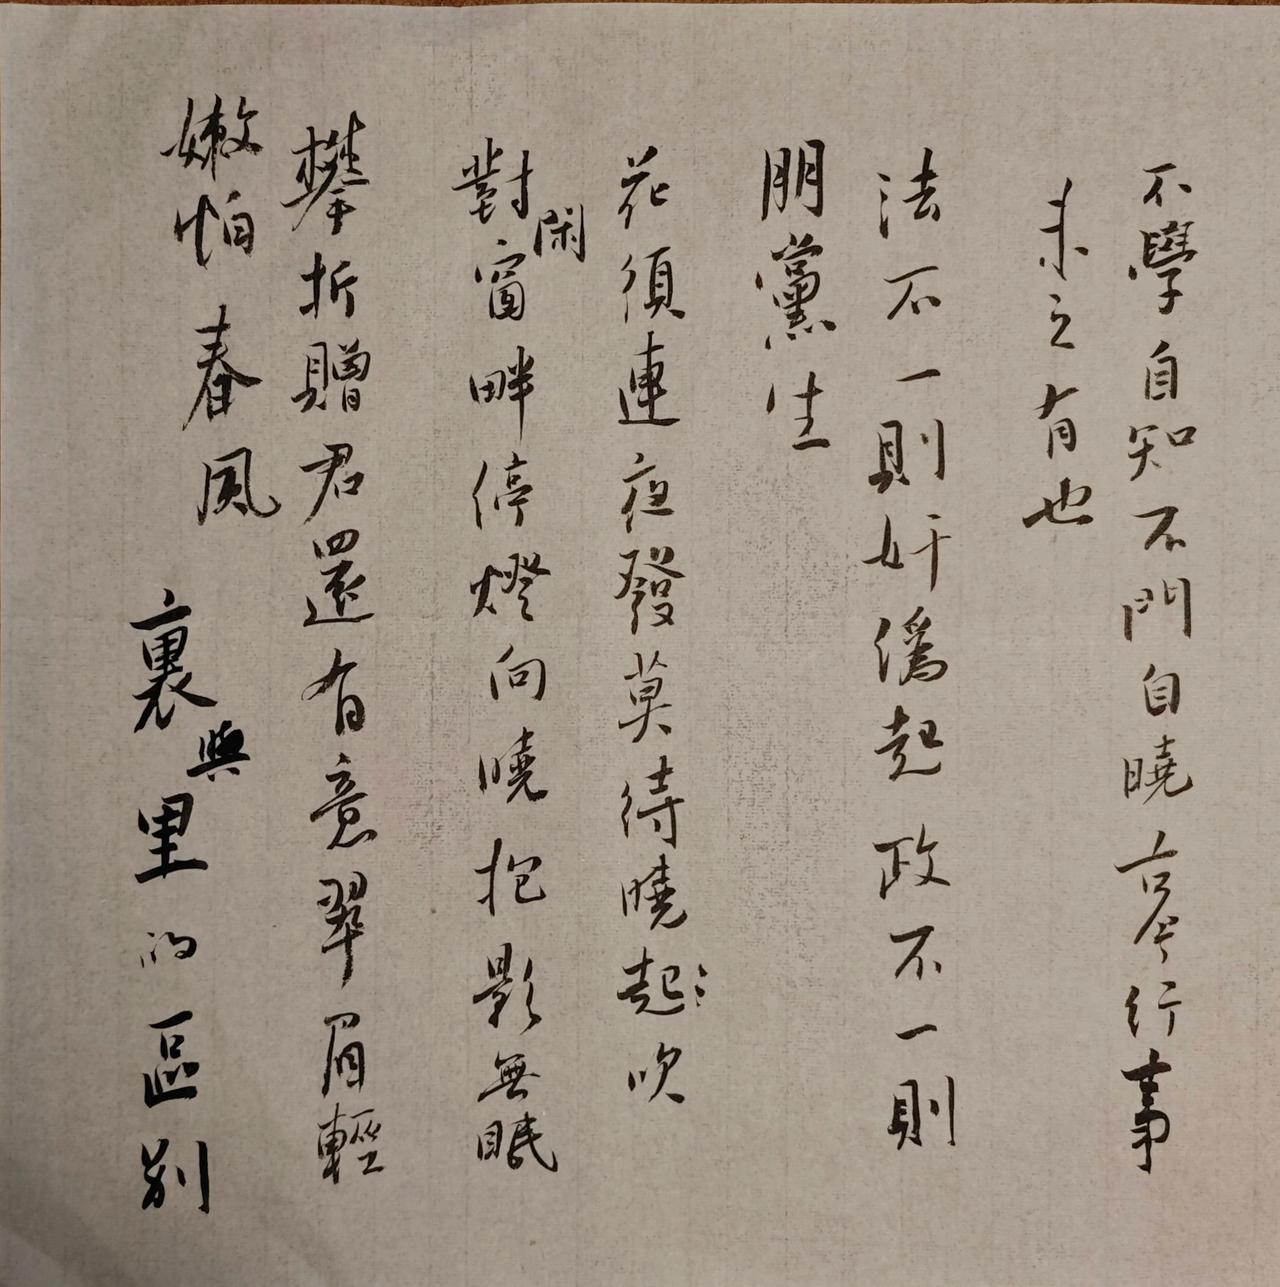 不學自知不門自曉古今行事
未之有也
法不一則奸僞起政不一則
朋黨生
花須連夜發莫待曉起吹
對閑窗畔停燈向曉抱影無眠
攀折贈君還有意翠眉輕
嫩怕春風 裏與里的區別